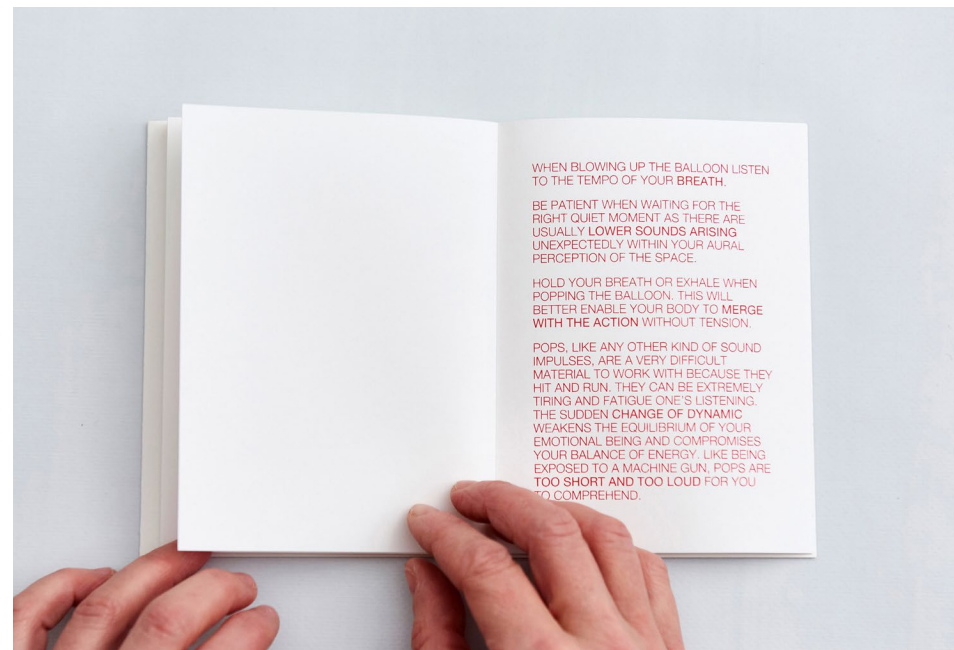 WHEN BLOWING UP THE BALLOON LISTEN
TO THE TEMPO OF YOUR BREATH.
BE PATIENT WHEN WAITING FOR THE
RIGHT QUIET MOMENT AS THERE ARE
USUALLY LOWER SOUNDS ARISING
UNEXPECTEDLY WITHIN YOUR AURAL
PERCEPTION OF THE SPACE.
HOLD YOUR BREATH OR EXHALE WHEN
POPPING THE BALLOON. THIS WILL
BETTER ENABLE YOUR BODY TO MERGE
WITH THE ACTION WITHOUT TENSION.
POPS, LIKE ANY OTHER KIND OF SOUND
IMPULSES, ARE A VERY DIFFICULT
MATERIAL TO WORK WITH BECAUSE THEY
HIT AND RUN. THEY CAN BE EXTREMELY
TIRING AND FATIGUE ONE'S LISTENING.
THE SUDDEN CHANGE OF DYNAMIC
WEAKENS THE EQUILIBRIUM OF YOUR
EMOTIONAL BEING AND COMPROMISES
YOUR BALANCE OF ENERGY. LIKE BEING
EXPOSED TO A MACHINE GUN, POPS ARE
TOO SHORT AND TOO LOUD FOR YOU
TO COMPREHEND.